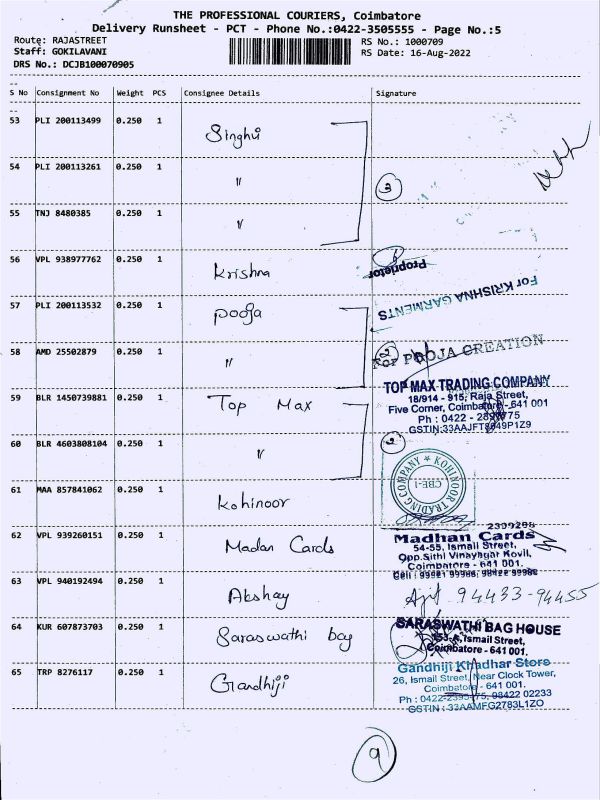 THE PROFESSIONAL COURIERS, Coimbatore
Delivery Runsheet - PCT - Phone No.:0422-3505555 - Page No.:5
Route: RAJASTREET
Staff: GOKILAVANI
DRS No.: DCJB100070905
RS No.: 1000709
RS Date: 16-Aug-2022
S No Consignment No Weight PCS Consignee Details Signature
53 PLI 200113499 0.250 1 Singhvi
54 PLI 200113261 0.250 1 〃
3
55 TNJ 8480385 0.250 1 〃
56 VPL 938977762 0.250 1 Krishna
Proprietor
For KRISHNA GARMENTS
57 PLI 200113532 0.250 1 Pooja
58 AMD 25502879 0.250 1 〃
2
For POOJA CREATION
59 BLR 1450739881 0.250 1 Top Max
TOP MAX TRADING COMPANY
18/914 - 915, Raja Street,
Five Corner, Coimbatore - 641 001
Ph : 0422 -
60 BLR 4603808104 0.250 1 〃
2
61 MAA 857841062 0.250 1 Kohinoor
KOHINOOR TRADING COMPANY
CBE-1
62 VPL 939260151 0.250 1 Madan Cards
Madhan Cards
54-55, Ismail Street,
Opp.Sithi Vinayagar Kovil,
Coimbatore - 641 001.
63 VPL 940192494 0.250 1 Akshay
Ajit 94433-94455
64 KUR 607873703 0.250 1 Saraswathi bag
SARASWATHI BAG HOUSE
153-A, Ismail Street,
Coimbatore - 641 001.
65 TRP 8276117 0.250 1 Gandhiji
Gandhiji Khadhar Store
26, Ismail Street, Near Clock Tower,
Coimbatore - 641 001.
98422 02233
GSTIN : 33AAMFG2783L1ZO
9